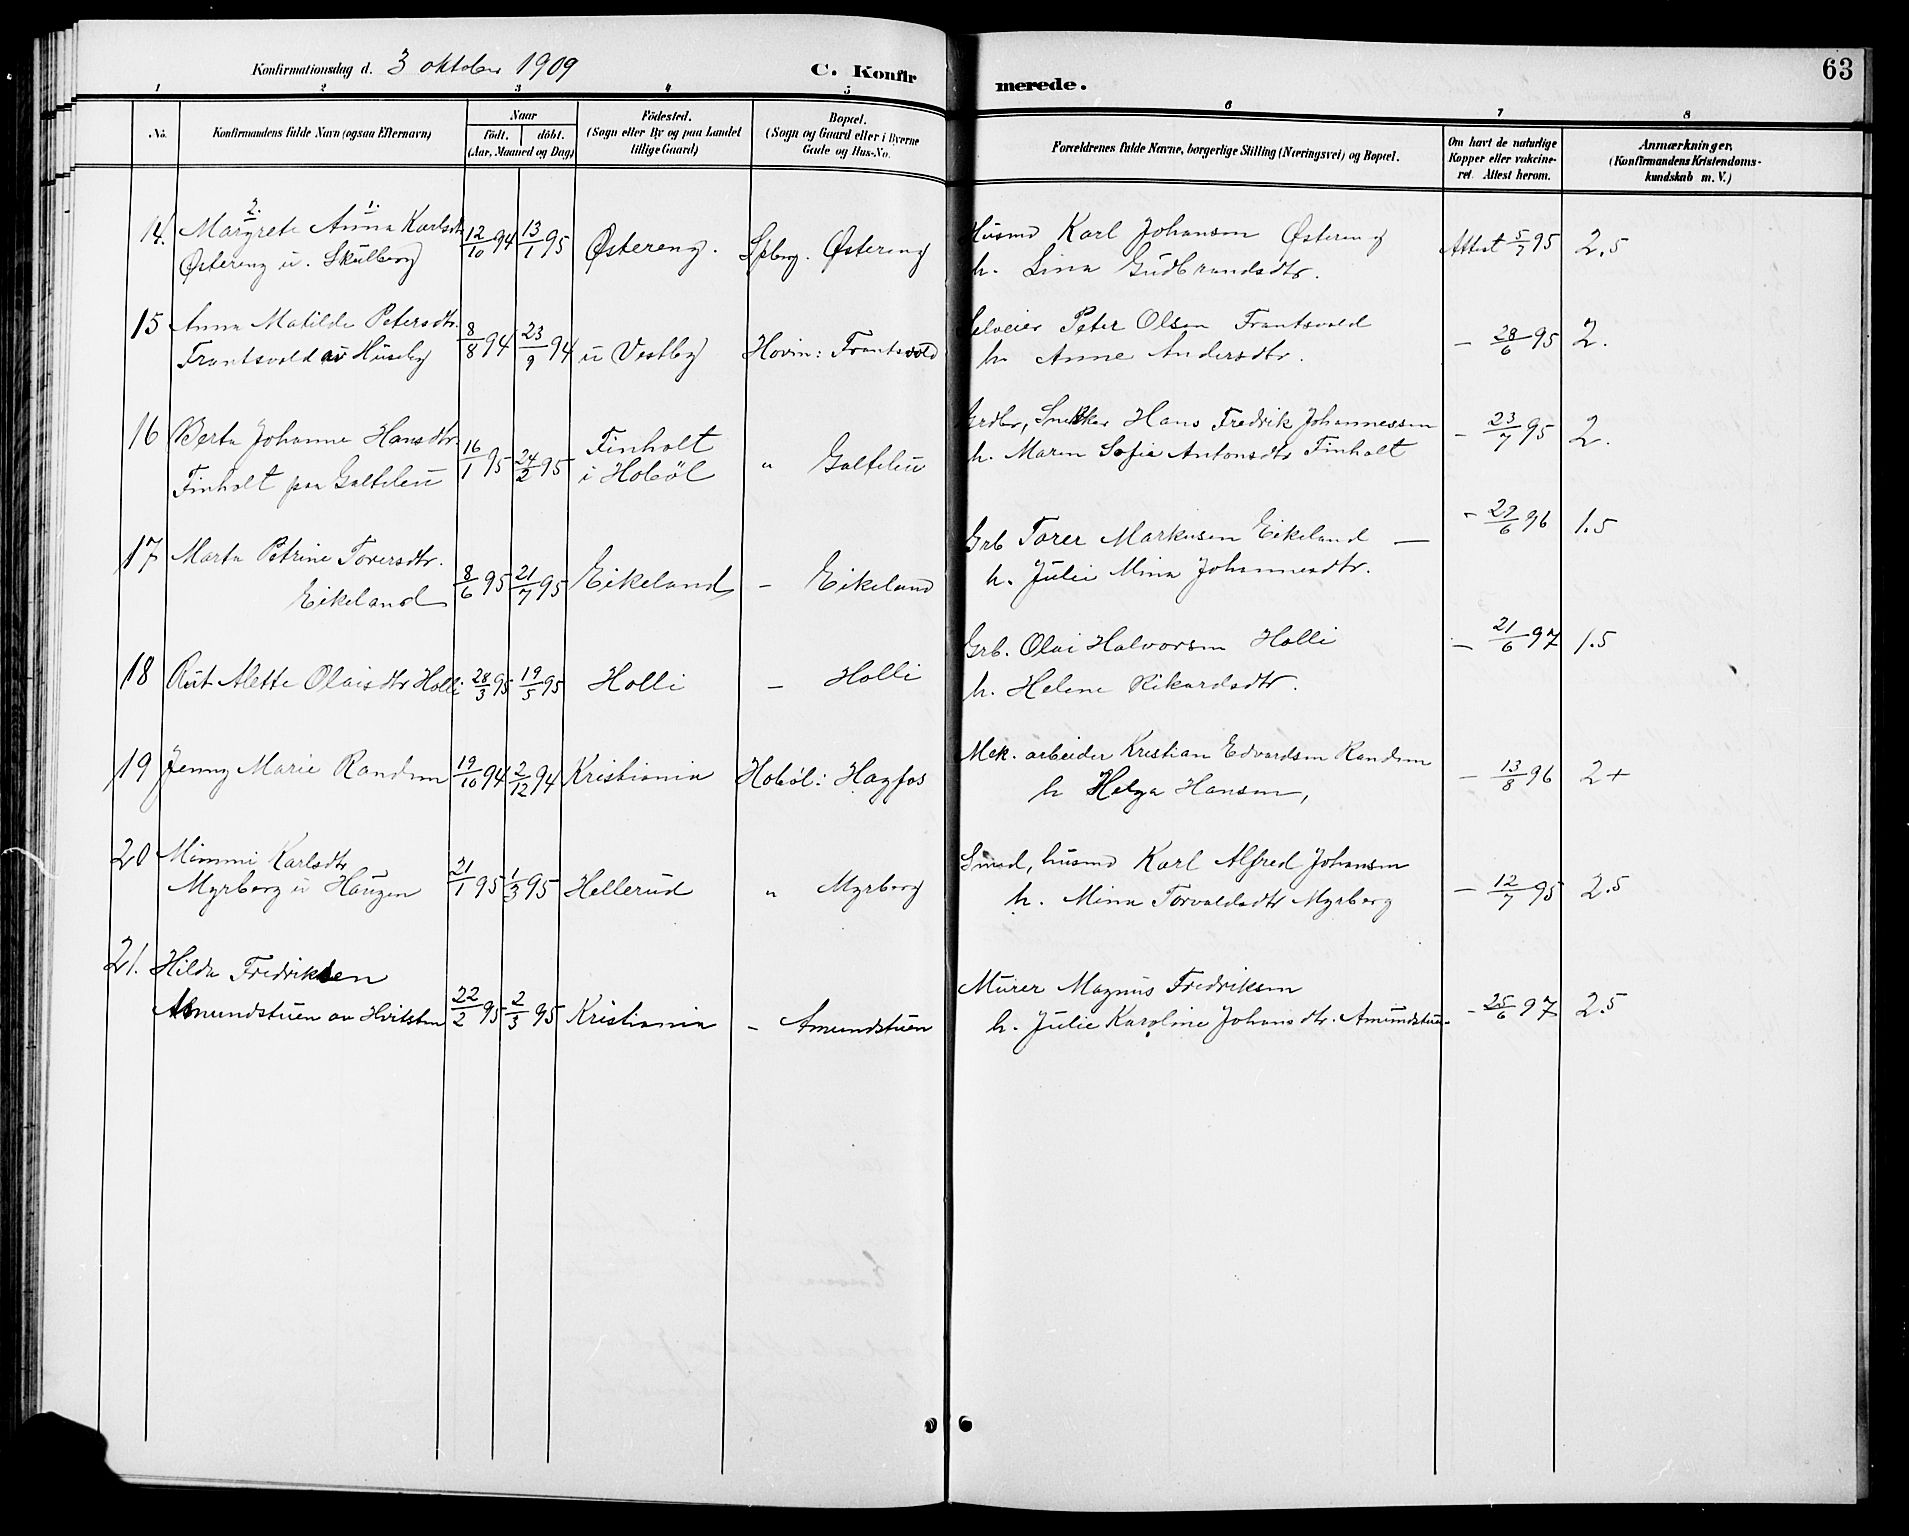 63
Konfirmationsdag d. 3 oktober 1909
C. Konfir merede.
1 2 3 4 5 6 7 8
No.
Konfirmandens fulde Navn (ogsaa Efternavn)
Naar
födt. döbt.
(Aar, Maaned og Dag)
Födested.
(Sogn eller By og paa Landet
tillige Gaard)
Bopæl.
(Sogn og Gaard eller i Byerne
Gade og Hus-No.
Forældrenes fulde Navne, borgerlige Stilling (Næringsvei) og Bopæl.
Om havt de naturlige
Kopper eller vakcine-
ret. Attest herom.
Anmærkninger.
(Konfirmandens Kristendoms-
kundskab m. V.)
2. 1.
14. Margrete Anna Karlsdt 12/10 94 13/1 95 Østereng. Spberg. Østereng Husmd Karl Johansen Østereng Attest 5/7 95 2.5
Østereng u. Skulberg h. Lina Gudbrandsdtr.
15 Anna Matilde Petersdtr. 8/8 94 23/9 94 u Vestby Hovin: Frantsvold Selveier Peter Olsen Frantsvold – 28/6 95 2.
Frantsvold av Huseby h. Anne Andersdtr.
16 Berta Johanne Hansdtr. 16/1 95 24/2 95 Finholt Grdbr, Snekker Hans Fredrik Johannessen – 23/7 95 2.
Finholt paa Galteleu i Hobøl " Galteleu h. Maren Sofie Antonsdtr Finholt
17 Marta Petrine Torersdtr. 8/6 95 21/7 95 Eikeland – Eikeland Grb Torer Markusen Eikeland — – 29/6 96 1.5
Eikeland h. Julie Mina Johannesdtr.
18 Rut Alette Olaisdtr Holli. 28/3 95 19/5 95 Holli – Holli Grb. Olai Halvorsen Holli – 21/6 97 1.5
h. Helene Rikardsdtr.
19 Jenny Marie Randem 19/10 94 2/12 94 Kristiania Hobøl: Hagfos Mek. arbeider Kristian Edvardsen Randem – 13/8 96 2+
h Helga Hansen,
20 Mimmi Karlsdtr 21/1 95 1/3 95 Hellerud " Myrberg Smed, husmd Karl Alfred Johansen – 12/7 95 2.5
Myrberg u Haugen h. Mina Torvaldsdtr Myrberg
21. Hilda Fredriksen 22/2 95 2/3 95 Kristiania – Amundstuen Murer Magnus Fredriksen – 25/6 97 2.5
Amundstuen av Hvitsten h. Julie Karoline Johansdtr. Amundstuen